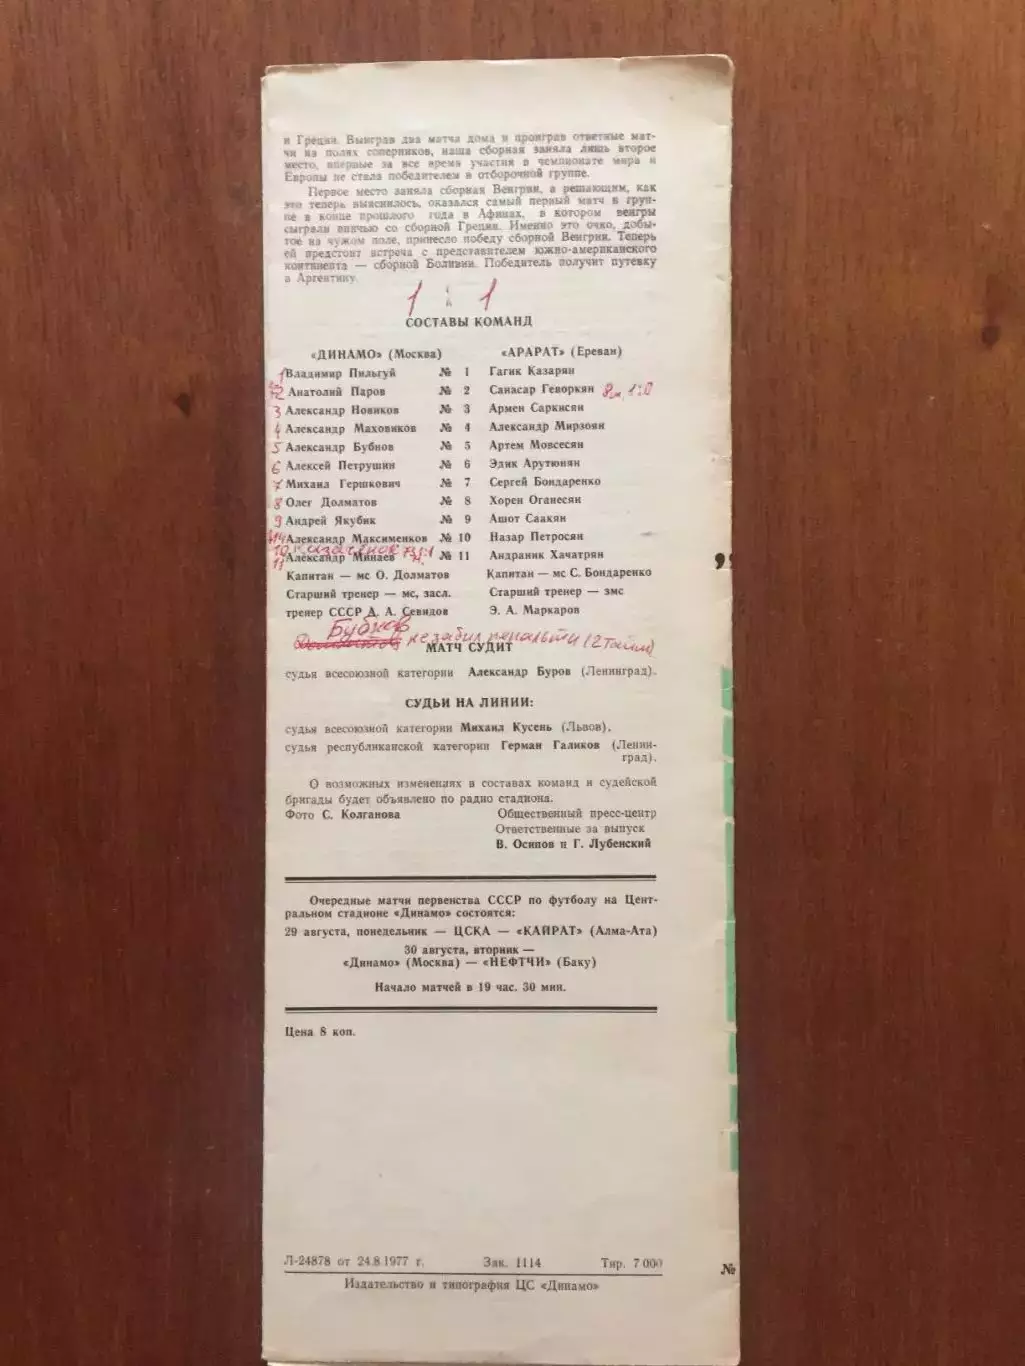 и Греции. Выиграв два матча дома и проиграв ответные мат-
чи на полях соперников, наша сборная заняла лишь второе
место, впервые за все время участия в чемпионате мира и
Европы не стала победителем в отборочной группе.
Первое место заняла сборная Венгрии, а решающим, как
это теперь выяснилось, оказался самый первый матч в груп-
пе в конце прошлого года в Афинах, в котором венгры
сыграли вничью со сборной Греции. Именно это очко, добы-
тое на чужом поле, принесло победу сборной Венгрии. Теперь
ей предстоит встреча с представителем южно-американского
континента — сборной Боливии. Победитель получит путевку
в Аргентину.
1 : 1
СОСТАВЫ КОМАНД
«ДИНАМО» (Москва) «АРАРАТ» (Ереван)
1 Владимир Пильгуй № 1 Гагик Казарян
2 Анатолий Паров № 2 Санасар Геворкян 8м, 1:0
3 Александр Новиков № 3 Армен Саркисян
4 Александр Маховиков № 4 Александр Мирзоян
5 Александр Бубнов № 5 Артем Мовсесян
6 Алексей Петрушин № 6 Эдик Арутюнян
7 Михаил Гершкович № 7 Сергей Бондаренко
8 Олег Долматов № 8 Хорен Оганесян
9 Андрей Якубик № 9 Ашот Саакян
14 Александр Максименков № 10 Назар Петросян
10 Казаченок 1:1
11 Александр Минаев № 11 Андраник Хачатрян
Капитан — мс О. Долматов Капитан — мс С. Бондаренко
Старший тренер — мс, засл. Старший тренер — змс
тренер СССР А. А. Севидов Э. А. Маркаров
Бубнов
не забил пенальти (2 тайм)
МАТЧ СУДИТ
судья всесоюзной категории Александр Буров (Ленинград).
СУДЬИ НА ЛИНИИ:
судья всесоюзной категории Михаил Кусень (Львов),
судья республиканской категории Герман Галиков (Ленин-
град).
О возможных изменениях в составах команд и судейской
бригады будет объявлено по радио стадиона.
Фото С. Колганова Общественный пресс-центр
Ответственные за выпуск
В. Осипов и Г. Лубенский
Очередные матчи первенства СССР по футболу на Цент-
ральном стадионе «Динамо» состоятся:
29 августа, понедельник — ЦСКА — «КАЙРАТ» (Алма-Ата)
30 августа, вторник —
«Динамо» (Москва) — «НЕФТЧИ» (Баку)
Начало матчей в 19 час. 30 мин.
Цена 8 коп.
Л-24878 от 24.8.1977 г. Зак. 1114 Тир. 7 000
Издательство и типография ЦС «Динамо»
№